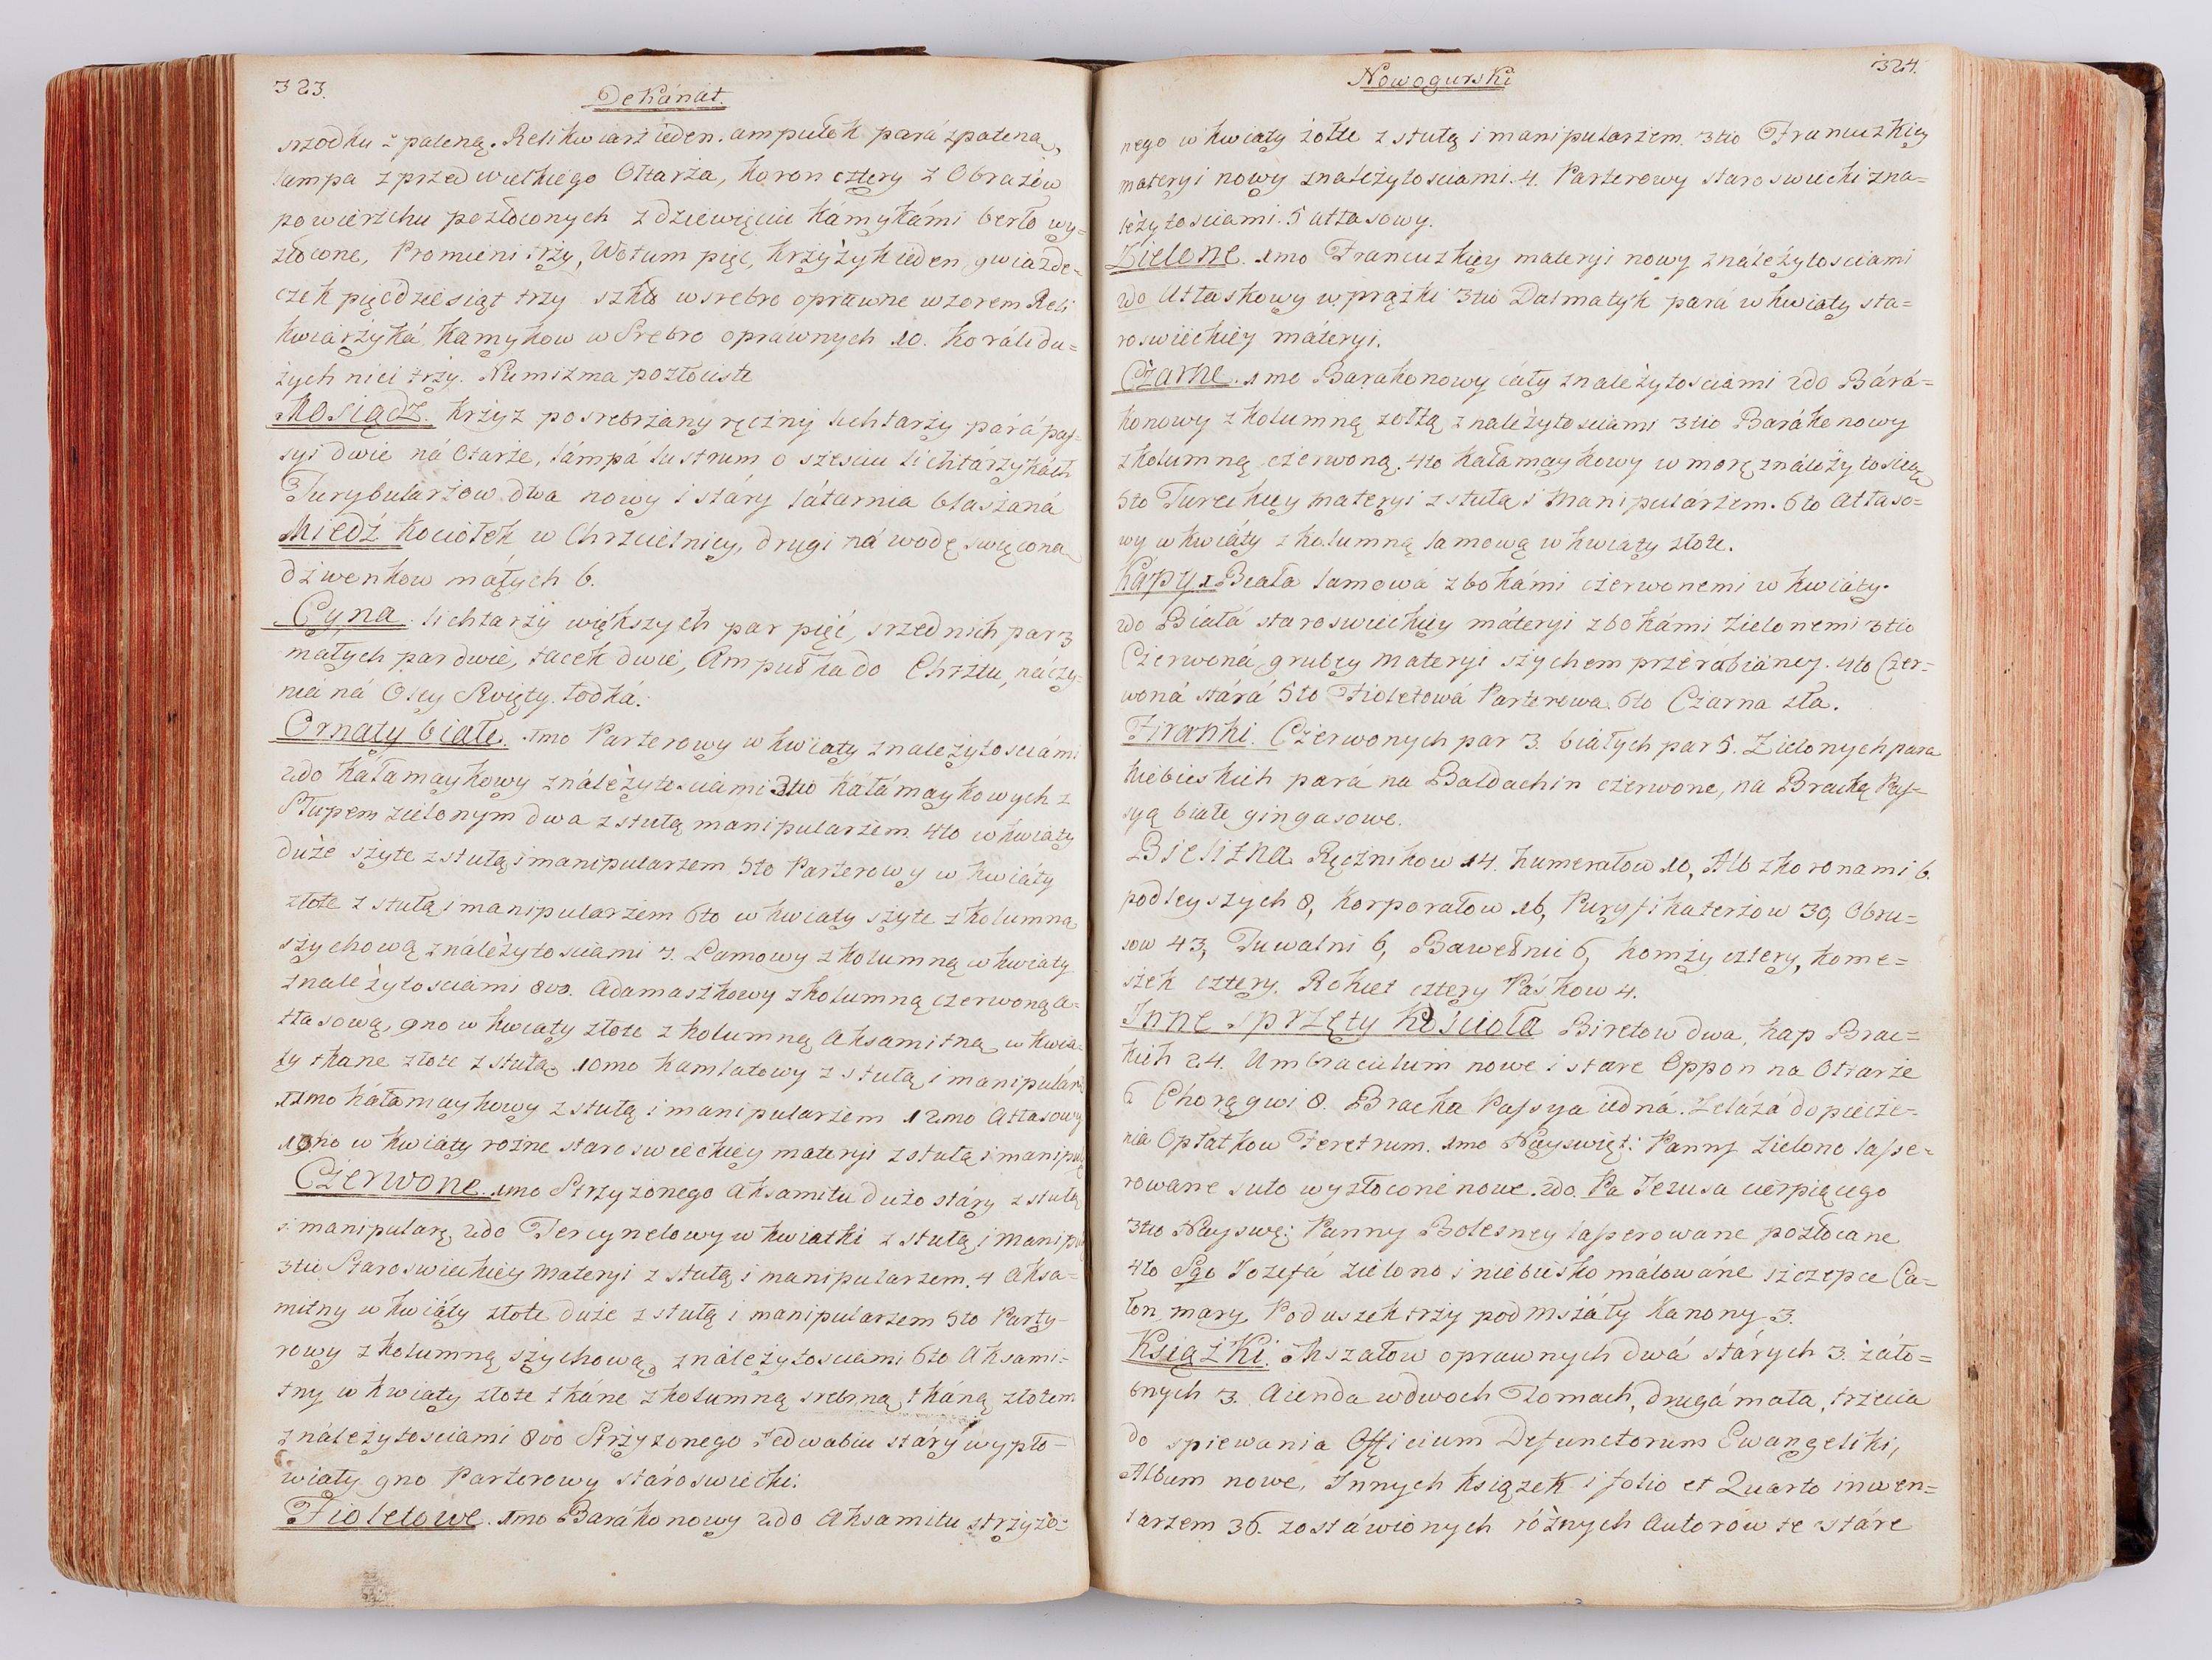 323.
Dekánat.
srzodku z pateną. Relikwiarż ieden. ampułek pará zpateną,
lampa zprzed wielkiego Ołtarża, koron cztery z Obrazów
powierżchu pozłoconych z dziewięciu kámykámi berło wy=
złocone, Promieni trży, Wotum pięc, krżyżyk ieden gwiazde=
czek pięćdziesiąt trzy szkło wsrebro oprawne wzorem Reli
kwiarżyká kamykow w Srebro oprawnych 10. koráli du=
żych nici trży. Numizma pozłociste
Mosiądz. krżyz posrebrżany ręczny lichtarży pará pas=
syi dwie ná Otarże, lámpá lustrum o szesciu lichtárżykách
Turybularżow dwa nowy i stáry látarnia blaszaná
Miedź kociołek w Chrzcielnicy, drugi ná wodę swięconą
dzwonkow małych 6.
Cyna. lichtarży większych par pięć, srzednich par 3
małych par dwie, tacek dwie, Ampułka do Chrztu, naczy=
niá ná Oley Swięty. łodká.
Ornaty białe. 1mo Parterowy w kwiaty znależytosciami
2do kałamaykowy ználeżytosciami 3tio kałámaykowych z
Słupem zielonym dwa z stułą manipularżem 4to w kwiaty
duże szyte z stułą i manipularzem 5to Parterowy w kwiáty
złote z stułą i manipularżem 6to w kwiaty szyte z kolumną
szychową ználeżytosciami 7. Lamowy z kolumną w kwiaty
znależytosciami 8vo. Adamaszkowy zkolumną czerwoną a=
tłasową, 9no w kwiaty złote z kolumną Aksamitną w kwia=
ty tkane złote z stułą. 10mo kamlatowy z stułą i manipulár
11mo káłamaykowy z stułą i manipularżem 12mo Atłasowy
13tio w kwiáty rożne staroswieckiey materyi z stułą i manipu
Czerwone. 1mo Strzyżonego Aksamitu dużo stáry z stułą
i manipularż, 2do Tercynelowy w kwiatki z stułą i manip
3tio Staroswieckiey materyi z stułą i manipularzem. 4 Aksa=
mitny w kwiáty złote duże z stułą i manipularzem 5to Party=
rowy z kolumną szychową, ználeżytosciami 6to Aksami=
tny w kwiaty złote tkáne z kolumną srebrną tkáną złotem
ználeżytosciami 8vo Strżyżonego Jedwabiu stáry wypło=
wiáły 9no Parterowy stároswiecki.
Fioletowe. 1mo Barákonowy 2do Aksamitu strzyżo=
Nowogurski
324.
nego w kwiaty żołte z stułą i manipularżem. 3tio Francuzkiey
materyi nowy znależytosciami. 4. Parterowy staroswiecki zna=
leżytosciami. 5 atłasowy.
Zielone. 1mo Francuzkiey materyi nowy ználeżytosciami
2do Atłaskowy w prążki 3tio Dalmatyk pará w kwiaty sta=
roswieckiey máteryi.
Czarne. 1mo Barakonowy cały znależytosciami 2do Bárá=
konowy z kolumną zołtą z należytosciami 3tio Barákonowy
zkolumną czerwoną. 4to kałamaykowy w morę ználeżytoscią
5to Tureckiey materyi z stułą i Manipulárżem. 6to Atłaso=
wy w kwiáty z kolumną lamową w kwiaty złote.
Kapy. 1 Biała lamowá zbokámi czerwonemi w kwiáty.
2do Biáłá staroswieckiey máteryi zbokámi Zielonemi 3tio
Czerwoná grubey materyi szychem przerábianey. 4to Czer=
woná stárá 5to Fioletowá Parterowa. 6to Czarna zła.
Firanki. Czerwonych par 3. białych par 5. Zielonych para
Niebieskich pará na Baldachin czerwone, na Bracką Pas=
syą białe gingasowe.
Bielizna. Ręcznikow 14. humerałow 10, Alb zkoronami 6.
podleyszych 8, korporałow 16, Puryfikaterżow 39, Obru=
sow 43, Tuwalni 6, Bawełnic 6, komży cztery, kome=
żek cztery. Rokiet cztery Páskow 4.
Inne sprzęty kościoła Biretow dwa, kap Brac=
kich 24. Umbraculum nowe i stare Oppon na Otrarże
6 Chorągwi 8. Bracka Passya iedná. Zelázá do piecze=
nia Opłatkow Feretrum. 1mo Nayswięt: Panny zielono lasse=
rowane suto wyzłocone nowe. 2do. Pa Jezusa cierpiącego
3tio Nayswę: Panny Bolesney lasserowane pozłocane
4to Sgo Jozefá zielono i niebiesko málowáne szczepce Ca=
łon, mary Poduszek trży pod mszáły Kanony 3.
Książki. Mszałow oprawnych dwá stárych 3. záło=
bnych 3. Aienda wdwoch Tomach, drugá mała, trżecia
do spiewania Officium Defunctorum Ewangeliki,
Album nowe, Innych ksiązek i folio et Quarto inwen=
tarzem 36. zostáwionych różnych Autorów te stáre